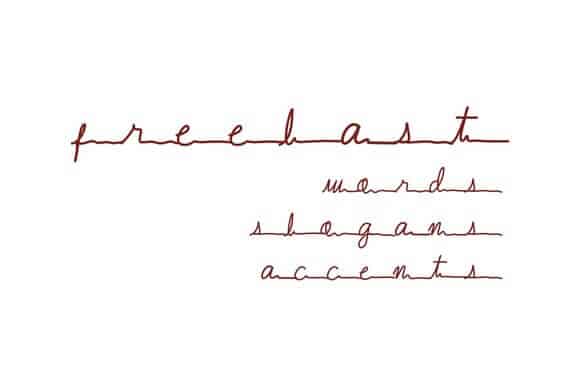 freelast
words
slogans
accents